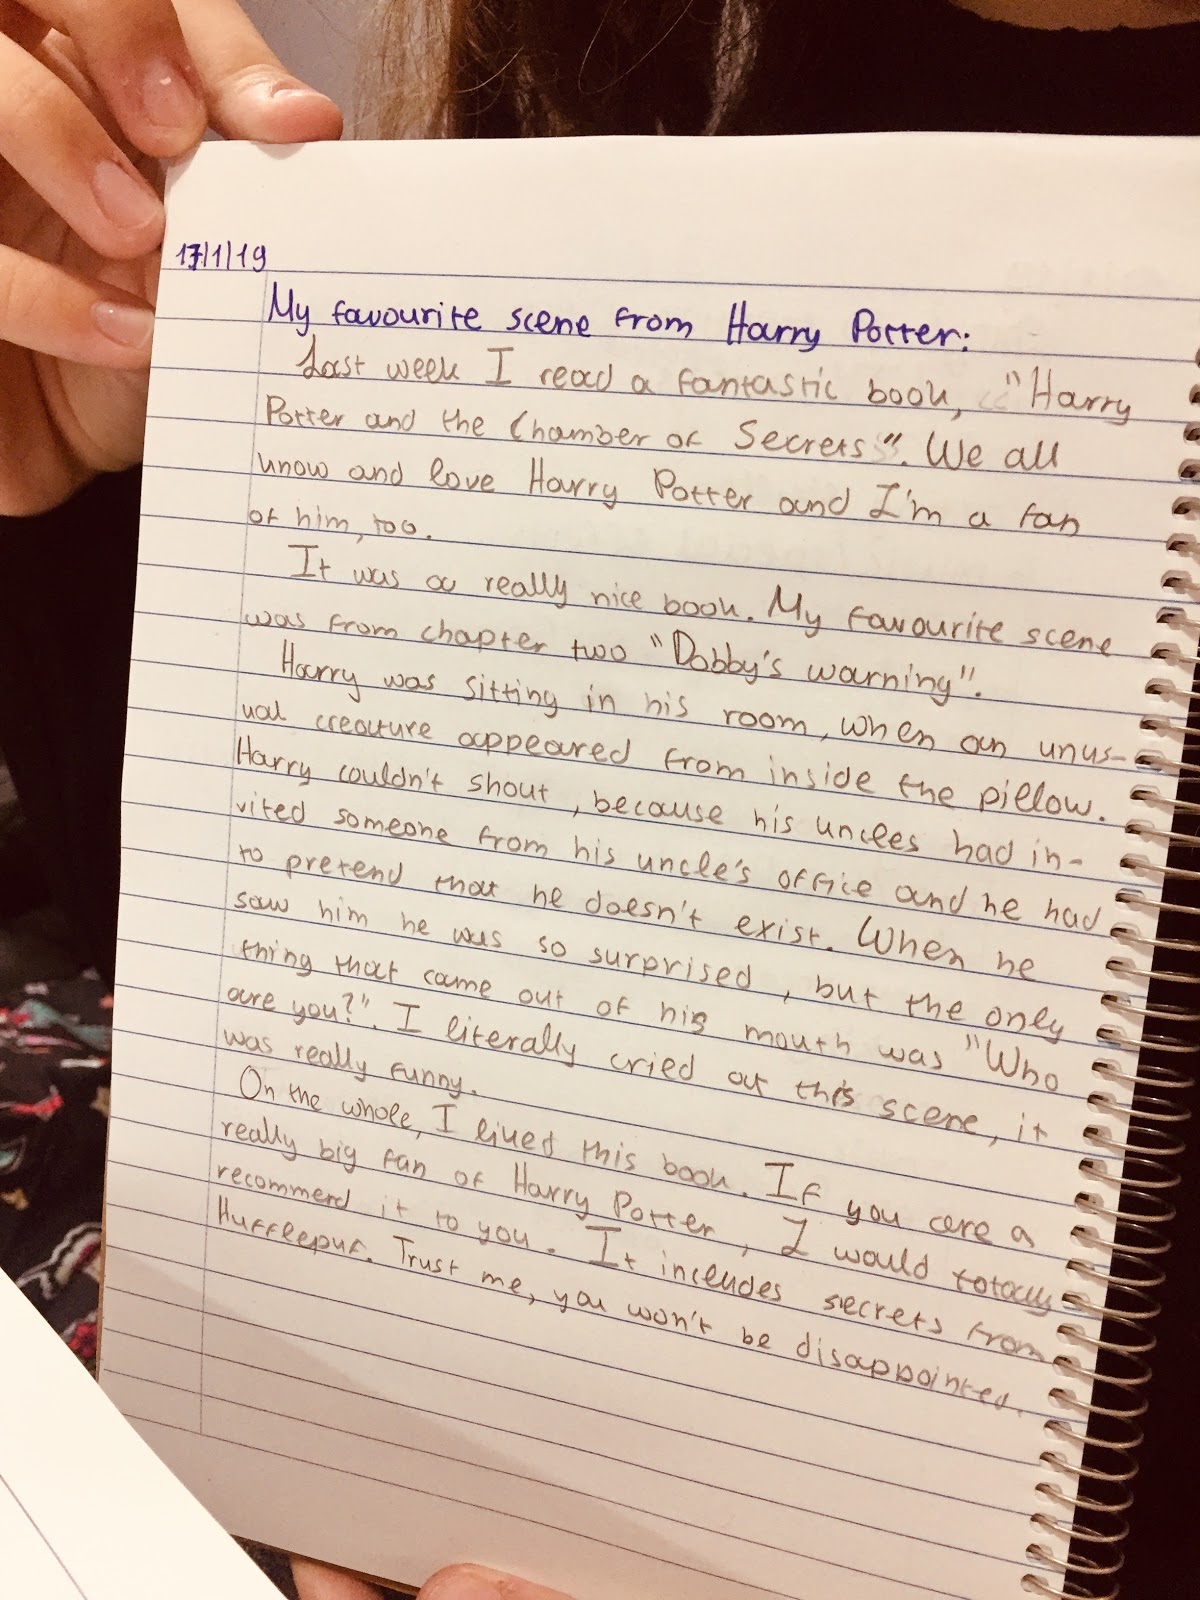 17/1/19
My favourite scene from Harry Potter:
Last week I read a fantastic book, "Harry
Potter and the Chamber of Secrets". We all
know and love Harry Potter and I'm a fan
of him, too.
It was a really nice book. My favourite scene
was from chapter two "Dobby's warning".
Harry was sitting in his room, when an unus-
ual creature appeared from inside the pillow.
Harry couldn't shout, because his uncles had in-
vited someone from his uncle's office and he had
to pretend that he doesn't exist. When he
saw him he was so surprised, but the only
thing that came out of his mouth was "Who
are you?". I literally cried at this scene, it
was really funny.
On the whole, I liked this book. If you are a
really big fan of Harry Potter, I would totally
recommend it to you. It includes secrets from
Hufflepuf. Trust me, you won't be disappointed.